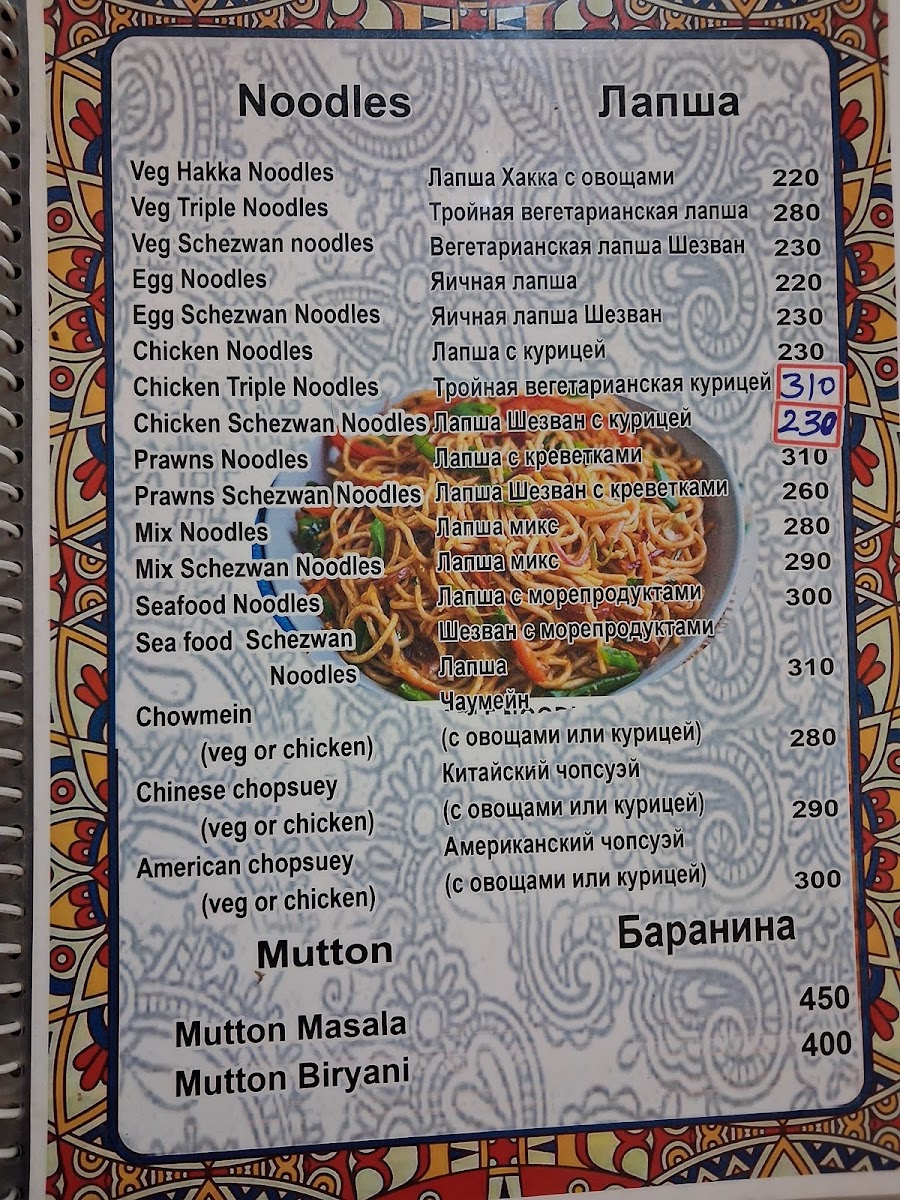 Noodles Лапша
Veg Hakka Noodles Лапша Хакка с овощами 220
Veg Triple Noodles Тройная вегетарианская лапша 280
Veg Schezwan noodles Вегетарианская лапша Шезван 230
Egg Noodles Яичная лапша 220
Egg Schezwan Noodles Яичная лапша Шезван 230
Chicken Noodles Лапша с курицей 230
Chicken Triple Noodles Тройная вегетарианская курицей 310
Chicken Schezwan Noodles Лапша Шезван с курицей 230
Prawns Noodles Лапша с креветками 310
Prawns Schezwan Noodles Лапша Шезван с креветками 260
Mix Noodles Лапша микс 280
Mix Schezwan Noodles Лапша микс 290
Seafood Noodles Лапша с морепродуктами 300
Sea food Schezwan Шезван с морепродуктами
Noodles Лапша 310
Chowmein Чаумейн
(veg or chicken) (с овощами или курицей) 280
Chinese chopsuey Китайский чопсуэй
(veg or chicken) (с овощами или курицей) 290
American chopsuey Американский чопсуэй
(veg or chicken) (с овощами или курицей) 300
Mutton Баранина
Mutton Masala 450
Mutton Biryani 400